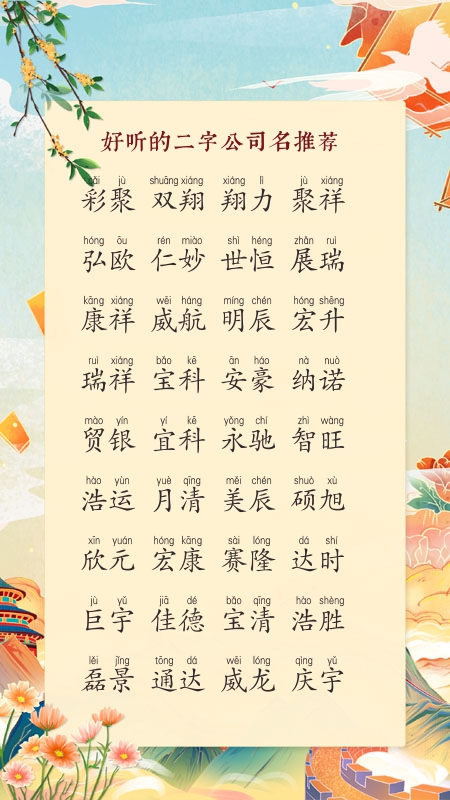 好听的二字公司名推荐
cǎi jù shuāng xiáng xiáng lì jù xiáng
彩聚 双翔 翔力 聚祥
hóng ōu rén miào shì héng zhǎn ruì
弘欧 仁妙 世恒 展瑞
kāng xiáng wēi háng míng chén hóng shēng
康祥 威航 明辰 宏升
ruì xiáng bǎo kē ān háo nà nuò
瑞祥 宝科 安豪 纳诺
mào yín yí kē yǒng chí zhì wàng
贸银 宜科 永驰 智旺
hào yùn yuè qīng měi chén shuò xù
浩运 月清 美辰 硕旭
xīn yuán hóng kāng sài lóng dá shí
欣元 宏康 赛隆 达时
jù yǔ jiā dé bǎo qīng hào shèng
巨宇 佳德 宝清 浩胜
lěi jǐng tōng dá wēi lóng qìng yǔ
磊景 通达 威龙 庆宇